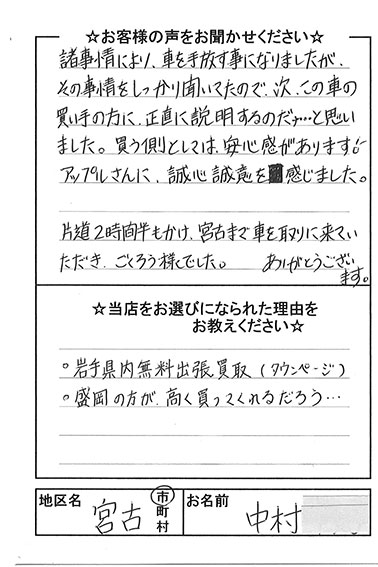 ☆お客様の声をお聞かせください☆
諸事情により、車を手放す事になりましたが、
その事情をしっかり聞いてたので、次、この車の
買い手の方に、正直に説明するのだナ…と思い
ました。買う側としては、安心感があります!
アップルさんに、誠心誠意を感じました。
片道2時間半もかけ、宮古まで車を取りに来てい
ただき、ごくろう様でした。 ありがとうござい
ます。
☆当店をお選びになられた理由を
お教えください☆
○岩手県内無料出張買取(タウンページ)
○盛岡の方が、高く買ってくれるだろう…
地区名 宮古 市町村 お名前 中村